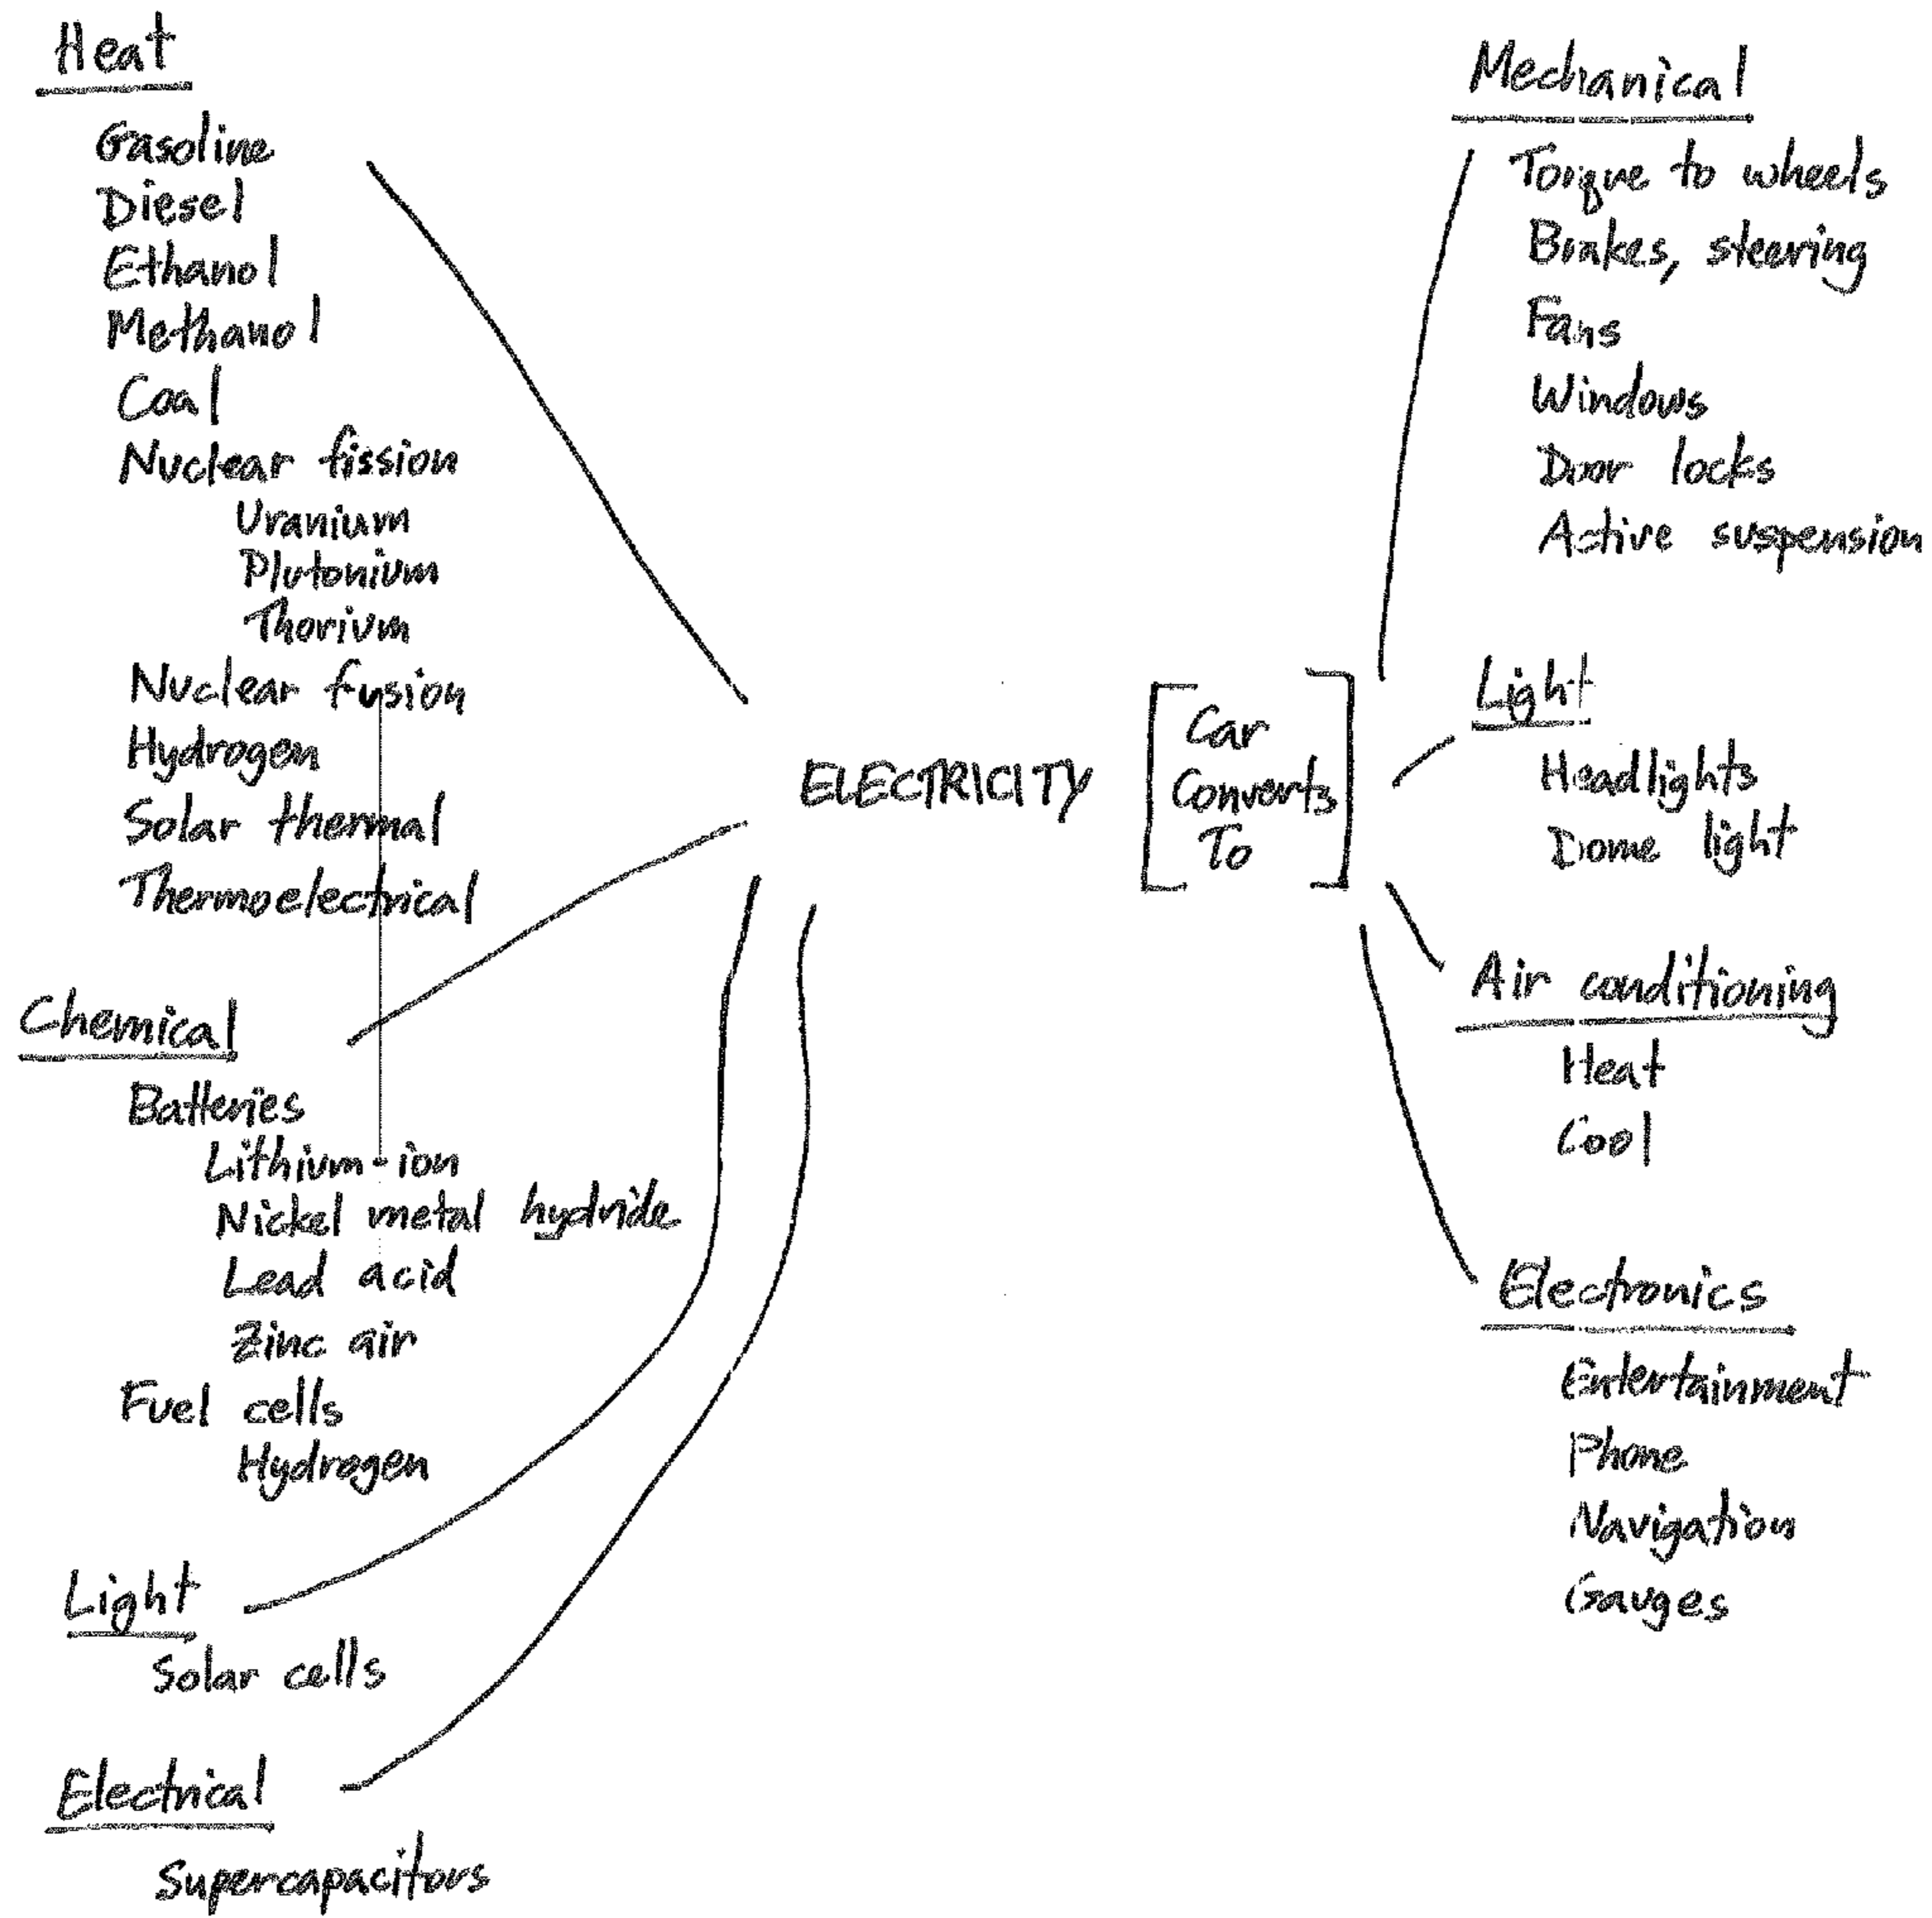 Heat
Gasoline
Diesel
Ethanol
Methanol
Coal
Nuclear fission
Uranium
Plutonium
Thorium
Nuclear fusion
Hydrogen
Solar thermal
Thermoelectrical
Chemical
Batteries
Lithium-ion
Nickel metal hydride
Lead acid
Zinc air
Fuel cells
Hydrogen
Light
Solar cells
Electrical
Supercapacitors
ELECTRICITY
Car
Converts
To
Mechanical
Torque to wheels
Brakes, steering
Fans
Windows
Door locks
Active suspension
Light
Headlights
Dome light
Air conditioning
Heat
Cool
Electronics
Entertainment
Phone
Navigation
Gauges